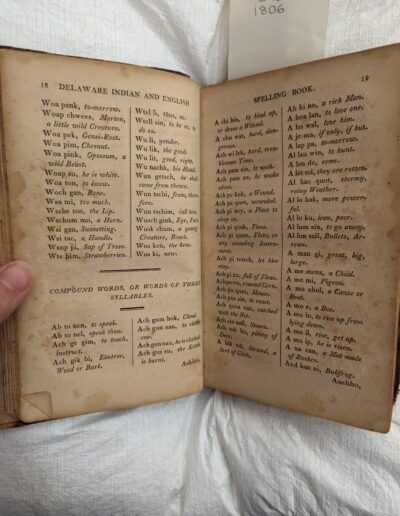 1806
18 DELAWARE INDIAN AND ENGLISH
Woa pank, to-morrow.
Woap chwees, Marten,
a little wild Creature.
Woa pek, Genai-Root.
Woa pim, Chesnut.
Woa pink, Opossum, a
wild Beast.
Woap su, he is white.
Woa ton, to know.
Woch gan, Bone.
Wsa mi, too much.
Wsche ton, the Lip.
Wschum mo, a Horn.
Wsi gau, Sunsetting.
Wsi tac, a Handle.
Wsup pi, Sap of Trees.
Wte him, Strawberries.
Wtel li, thus, so.
Wtell sin, to be so, to
do so.
Wu li, yonder.
Wu lik, the good.
Wu lit, good, right.
Wu nachk, his Hand.
Wun getsch, he shall
come from thence.
Wun tschi, from, therefore.
Wun tschim, call him.
Wusch gink, Eye, Face.
Wusk chum, a young
Creature, Beast.
Wus ken, the new.
Wus ki, new.
COMPOUND WORDS, OR WORDS OF THREE
SYLLABLES.
Ab to nen, to speak.
Ab to nel, speak thou.
Ach ge gim, to teach,
instruct.
Ach gik bi, Elmtree,
Wood or Bark.
Ach gum hok, Cloud.
Ach gun nan, to clothe
one.
Ach gun nau, he is clothed
Ach gus su, the Kettle
is burnt.
SPELLING BOOK. 19
A chi bis, to bind up,
or dress a Wound.
A cho wat, hard, dangerous.
Ach wi lok, hard, troublesome Time.
Ach pam sin, to walk.
Ach pam su, he walks
about.
Ach pe kok, a Wound.
Ach pe quot, wounded.
Ach pi ney, a Place to
sleep on.
Ach pi quon, Flute, or
any sounding Instrument.
Ach pi tetsch, let him
stay.
Ach po em, roasted Corn.
Ach po ques, Mouse.
Ach pus sin, to roast.
with the Net.
Ach sin nall, Stones.
Thread, a
Sort of Cloth.
Ah hi no, a rich Man.
Ah hoa lan, to love one.
Ah ho wal, love him.
A je ma, if only, if but.
A lap pa, to-morrow.
Al lau win, to hunt.
A len de, some.
A let tol, they are rotten.
Al hac quot, stormy,
rainy Weather.
Al lo hak, more powerful.
Al lo ku, lean, poor.
Al lum sin, to go away.
Al lun sall, Bullets, Arrows.
A man gi, great, big,
large.
A me mens, a Child.
A me mi, Pigeon.
A mo chol, a Canoe or
Boat.
A mo e, a Bee.
A mu in, to rise up from
lying down.
A mu il, rise, get up.
A mu ip, he is risen.
A na can, a Mat made
of Rushes.
And han ni, Bullfrog.